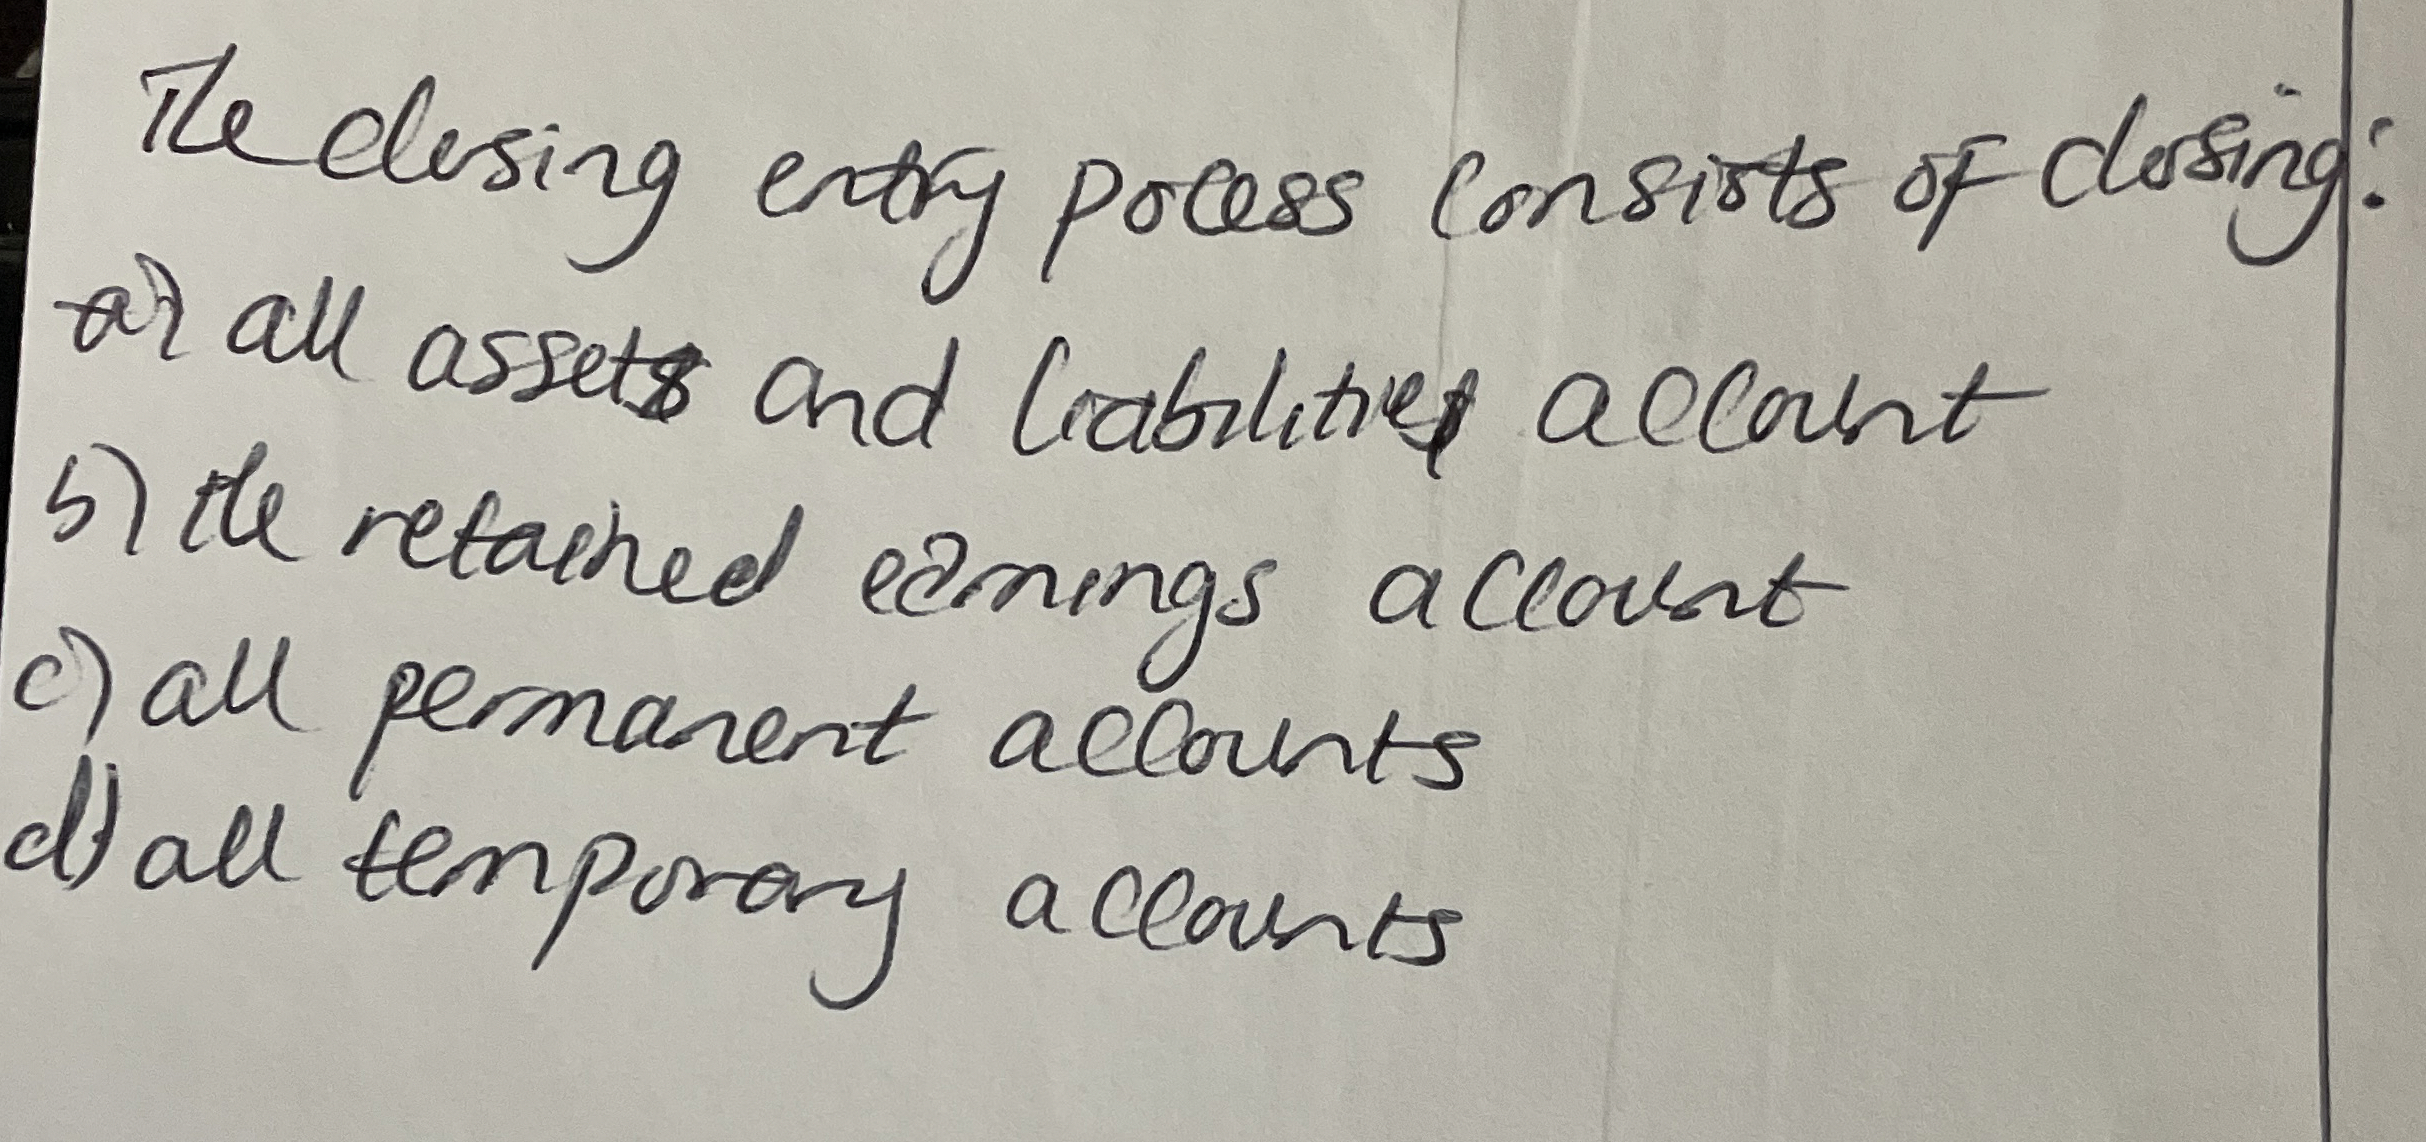 The closing entry pocess consists of closing:
a) all assets and liabilities account
b) the retained earnings account
c) all permanent accounts
d) all temporary accounts